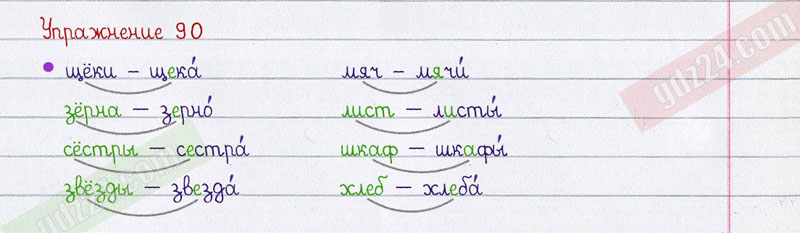 Упражнение 90
• щёки – щека́ мяч – мячи́
зёрна – зерно́ лист – листы́
сёстры – сестра́ шкаф – шкафы́
звёзды – звезда́ хлеб – хлеба́
gdz24.com
gdz24.com